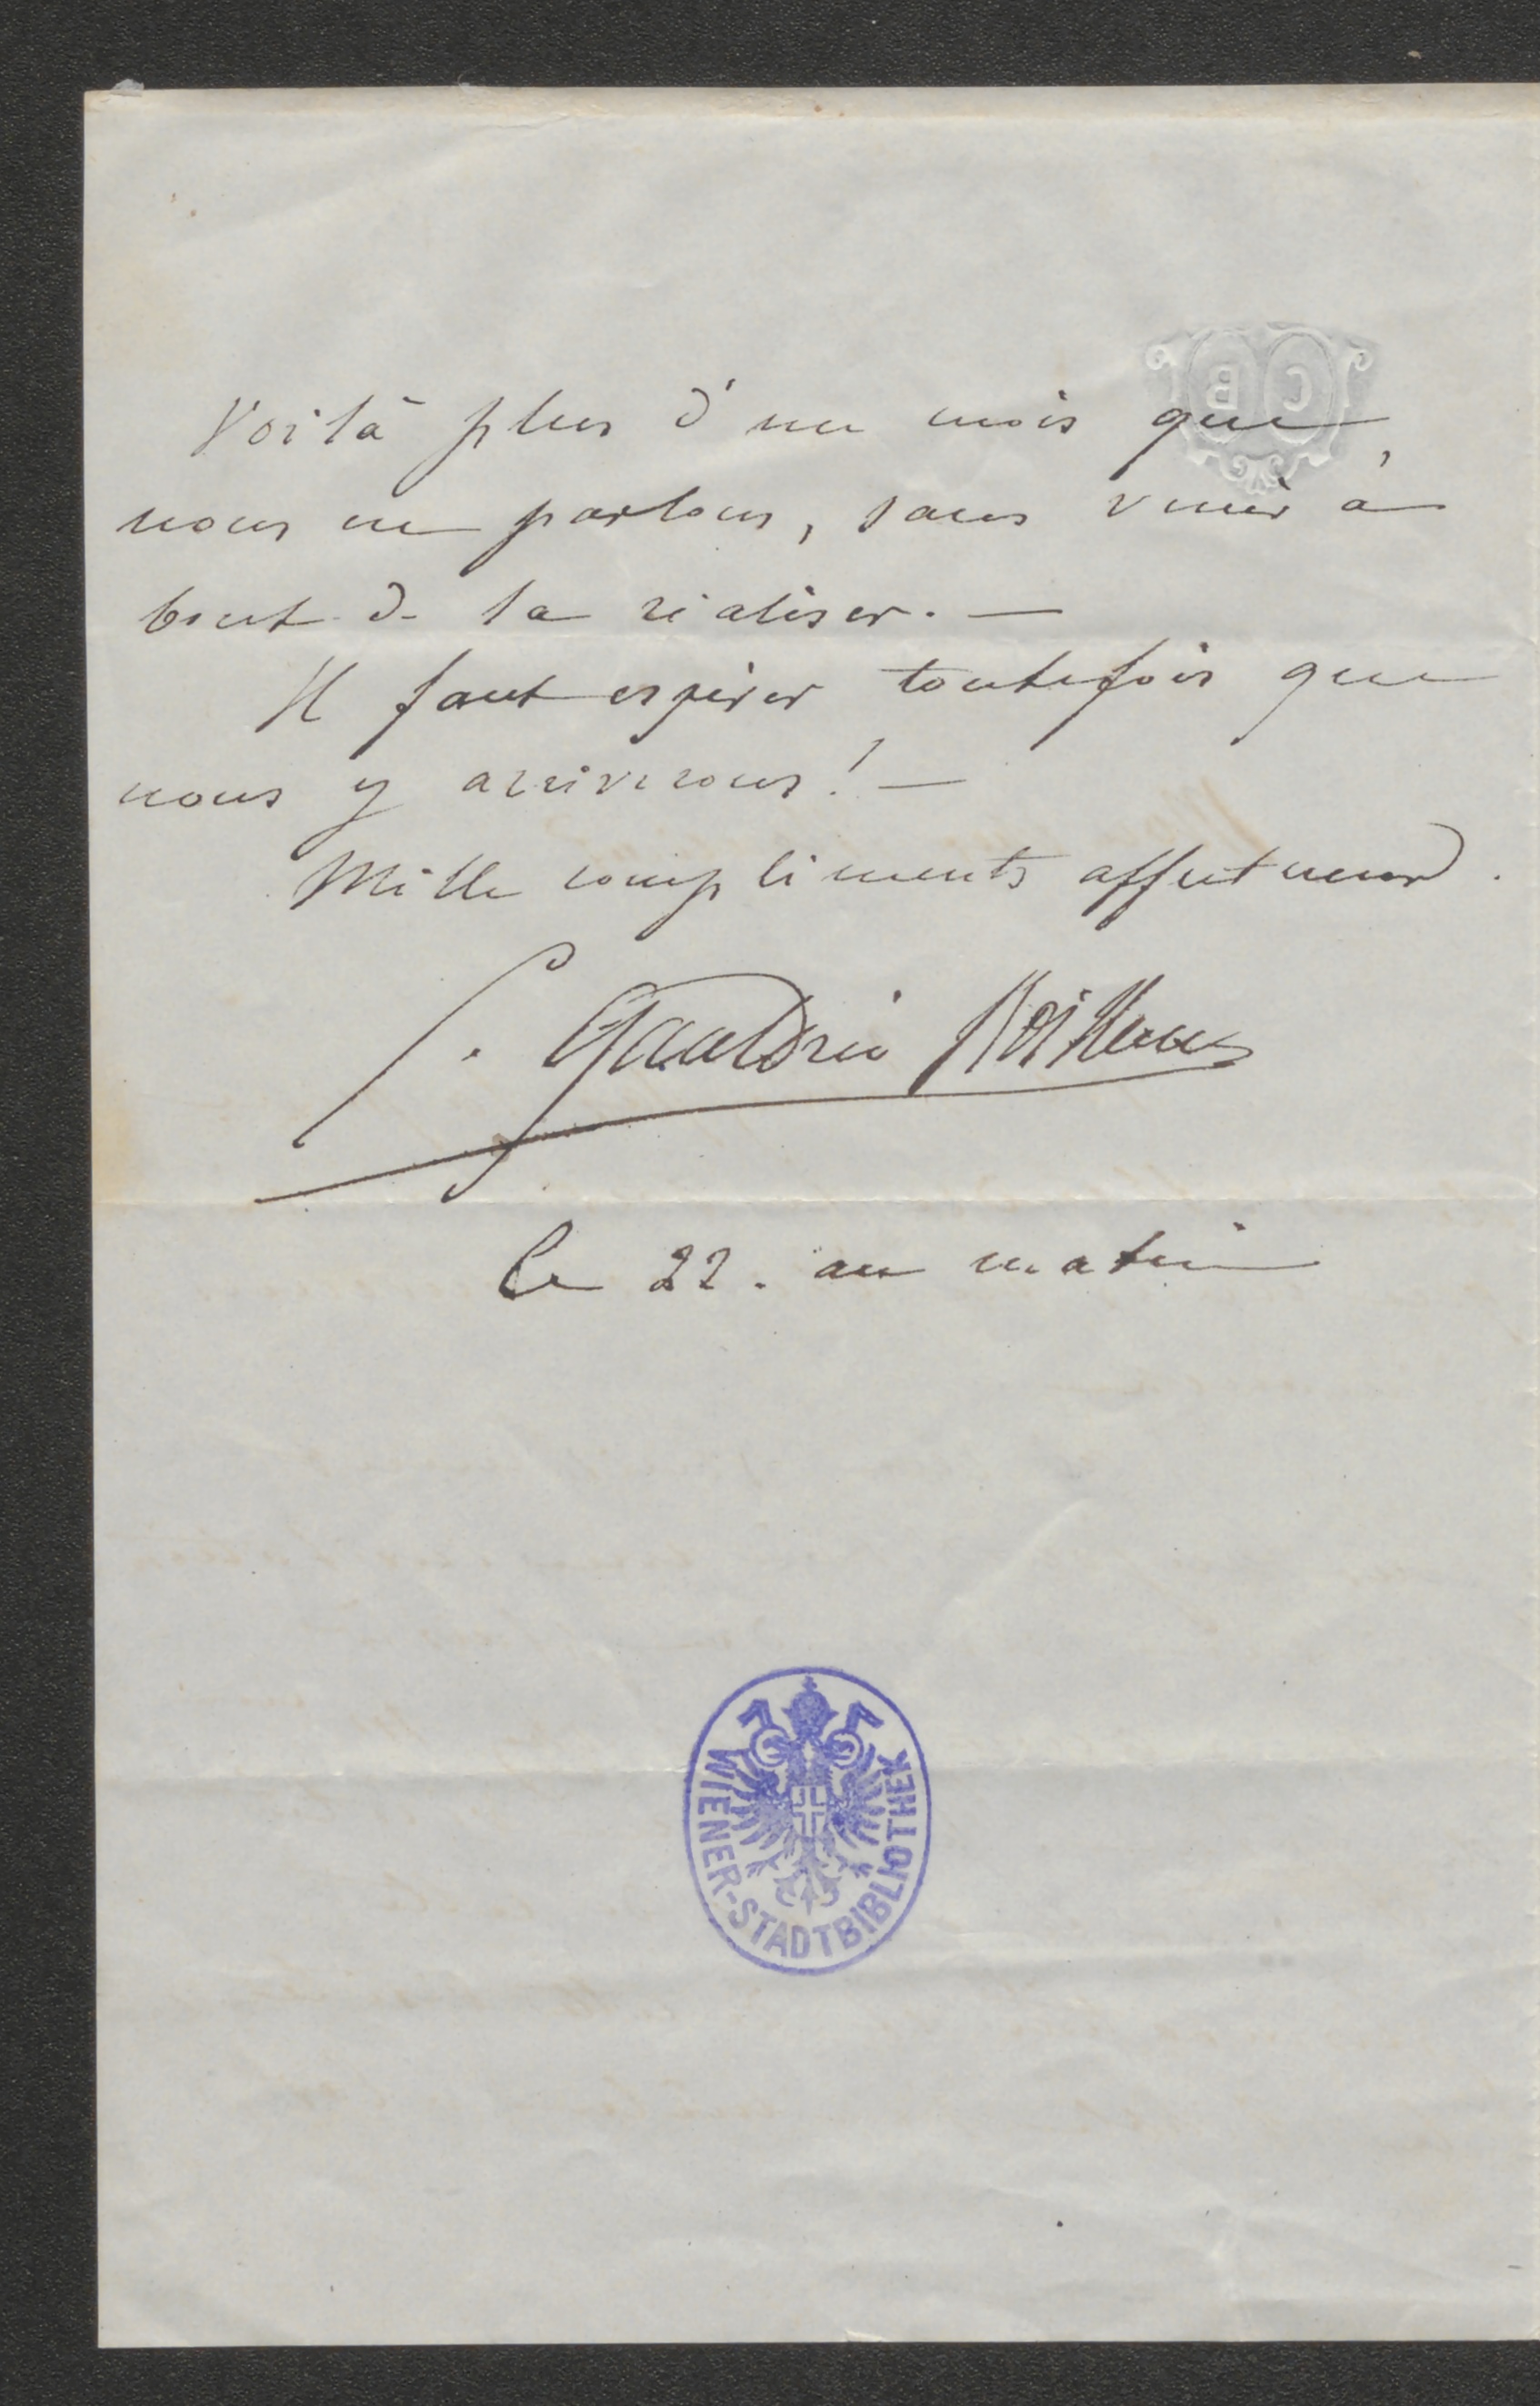 Voilà plus d'un mois que
nous en parlons, sans venir à
bout de la réaliser. —
Il faut espérer toutefois que
nous y arriverons! —
Mille compliments affectueux.
Le 22. au matin
WIENER-STADTBIBLIOTHEK